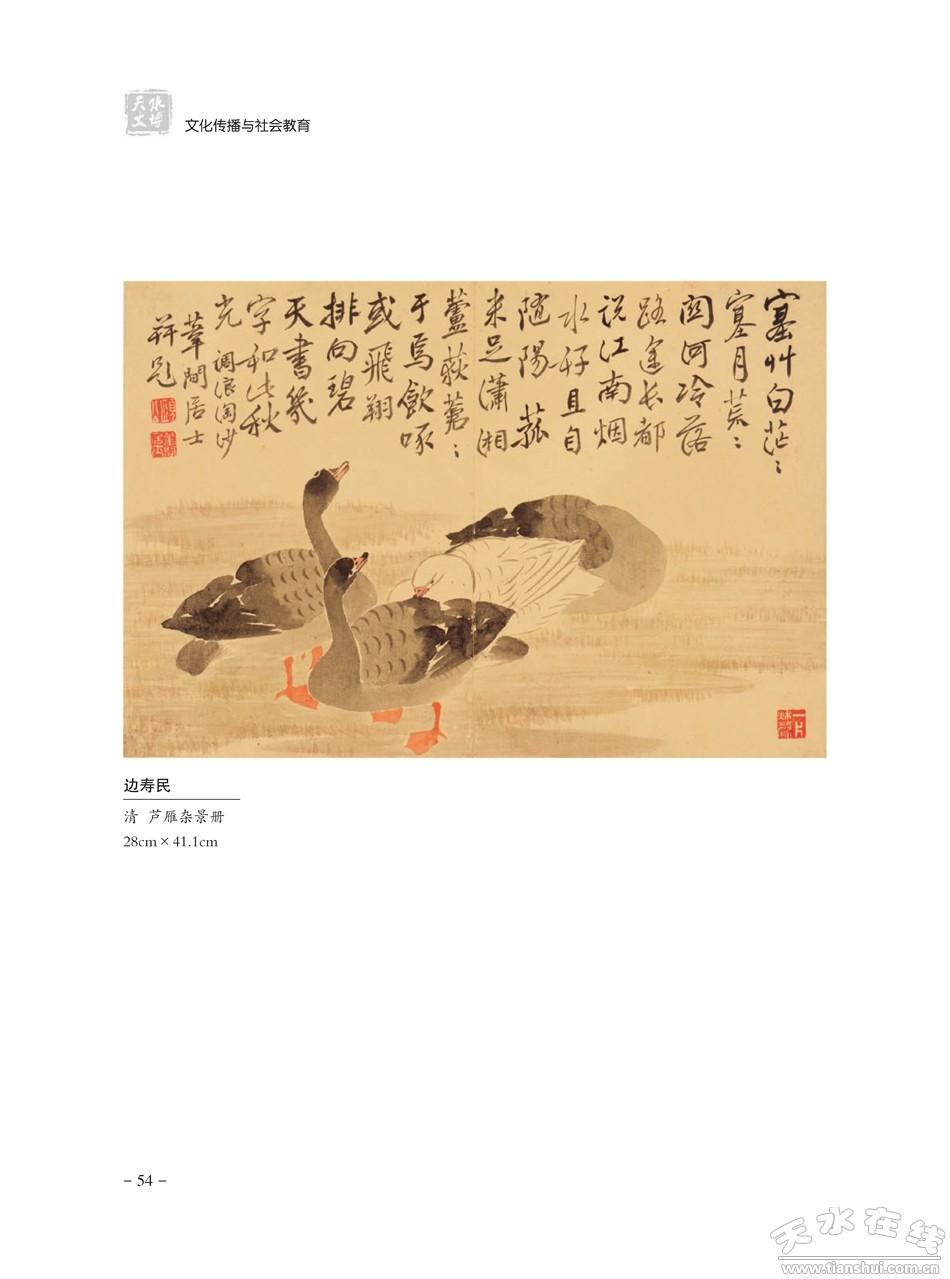 天水
文博
文化传播与社会教育
塞艸白茫〻
塞月荒〻
関河冷落
路途长都
说江南烟
水好且自
随陽 菰
米足潇湘
蘆荻蒼〻
于焉飲啄
或飛翔
排向碧
天書幾
字和此秋
光 调浪淘沙
葦間居士
并题
一片
边寿民
清 芦雁杂景册
28cm × 41.1cm
- 54 -
天水在线
www.tianshui.com.cn